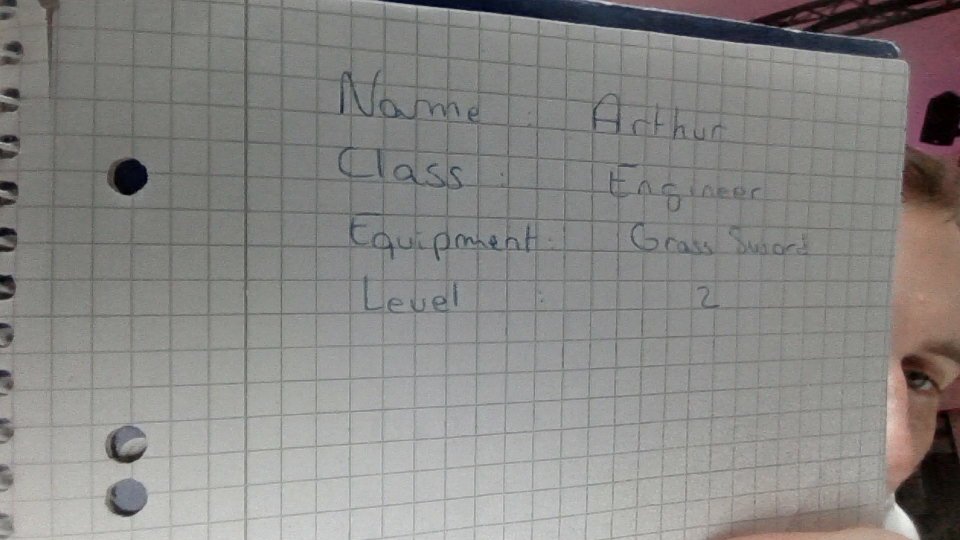 Name : Arthur
Class : Engineer
Equipment : Grass Sword
Level : 2